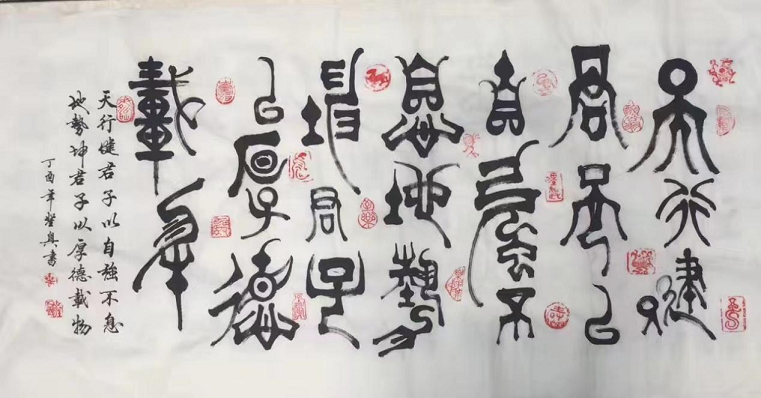 天行健
君子以
自強不
息地勢
坤君子
以厚德
載物
天行健君子以自強不息
地勢坤君子以厚德載物
丁酉年書